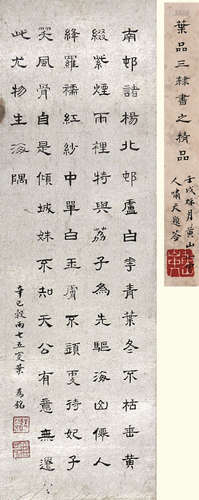 葉品三隸書之精品
壬戌秋月黃山
人嘯天題簽
南邨諸楊北邨盧白華青葉冬不枯垂黃
綴紫煙雨裡特與荔子為先驅海山僊人
絳羅襦紅紗中單白玉膚不須更待妃子
笑風骨自是傾城姝不知天公有意無遣
此尤物生海隅
辛巳穀雨七五叟葉為銘